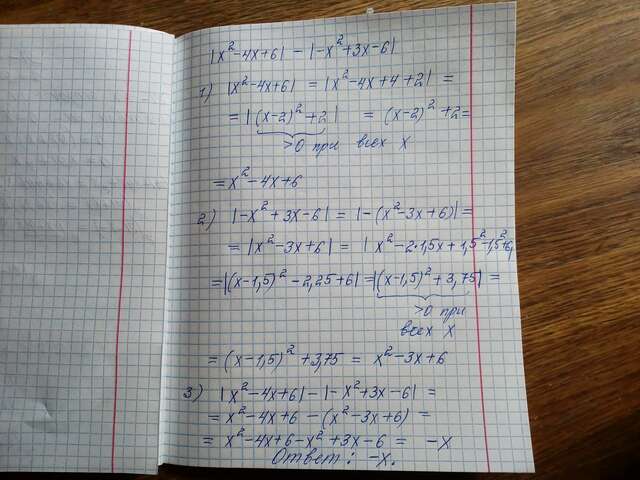 |x²-4x+6| - |-x²+3x-6|
1) |x²-4x+6| = |x²-4x+4+2| =
= |(x-2)²+2| = (x-2)²+2=
>0 при всех x
= x²-4x+6
2) |-x²+3x-6| = |-(x²-3x+6)| =
= |x²-3x+6| = |x²-2·1,5x+1,5²-1,5²+6|
=|(x-1,5)²-2,25+6| =|(x-1,5)²+3,75| =
>0 при
всех x
= (x-1,5)²+3,75 = x²-3x+6
3) |x²-4x+6|-|-x²+3x-6| =
= x²-4x+6 - (x²-3x+6) =
= x²-4x+6-x²+3x-6 = -x
Ответ: -x.